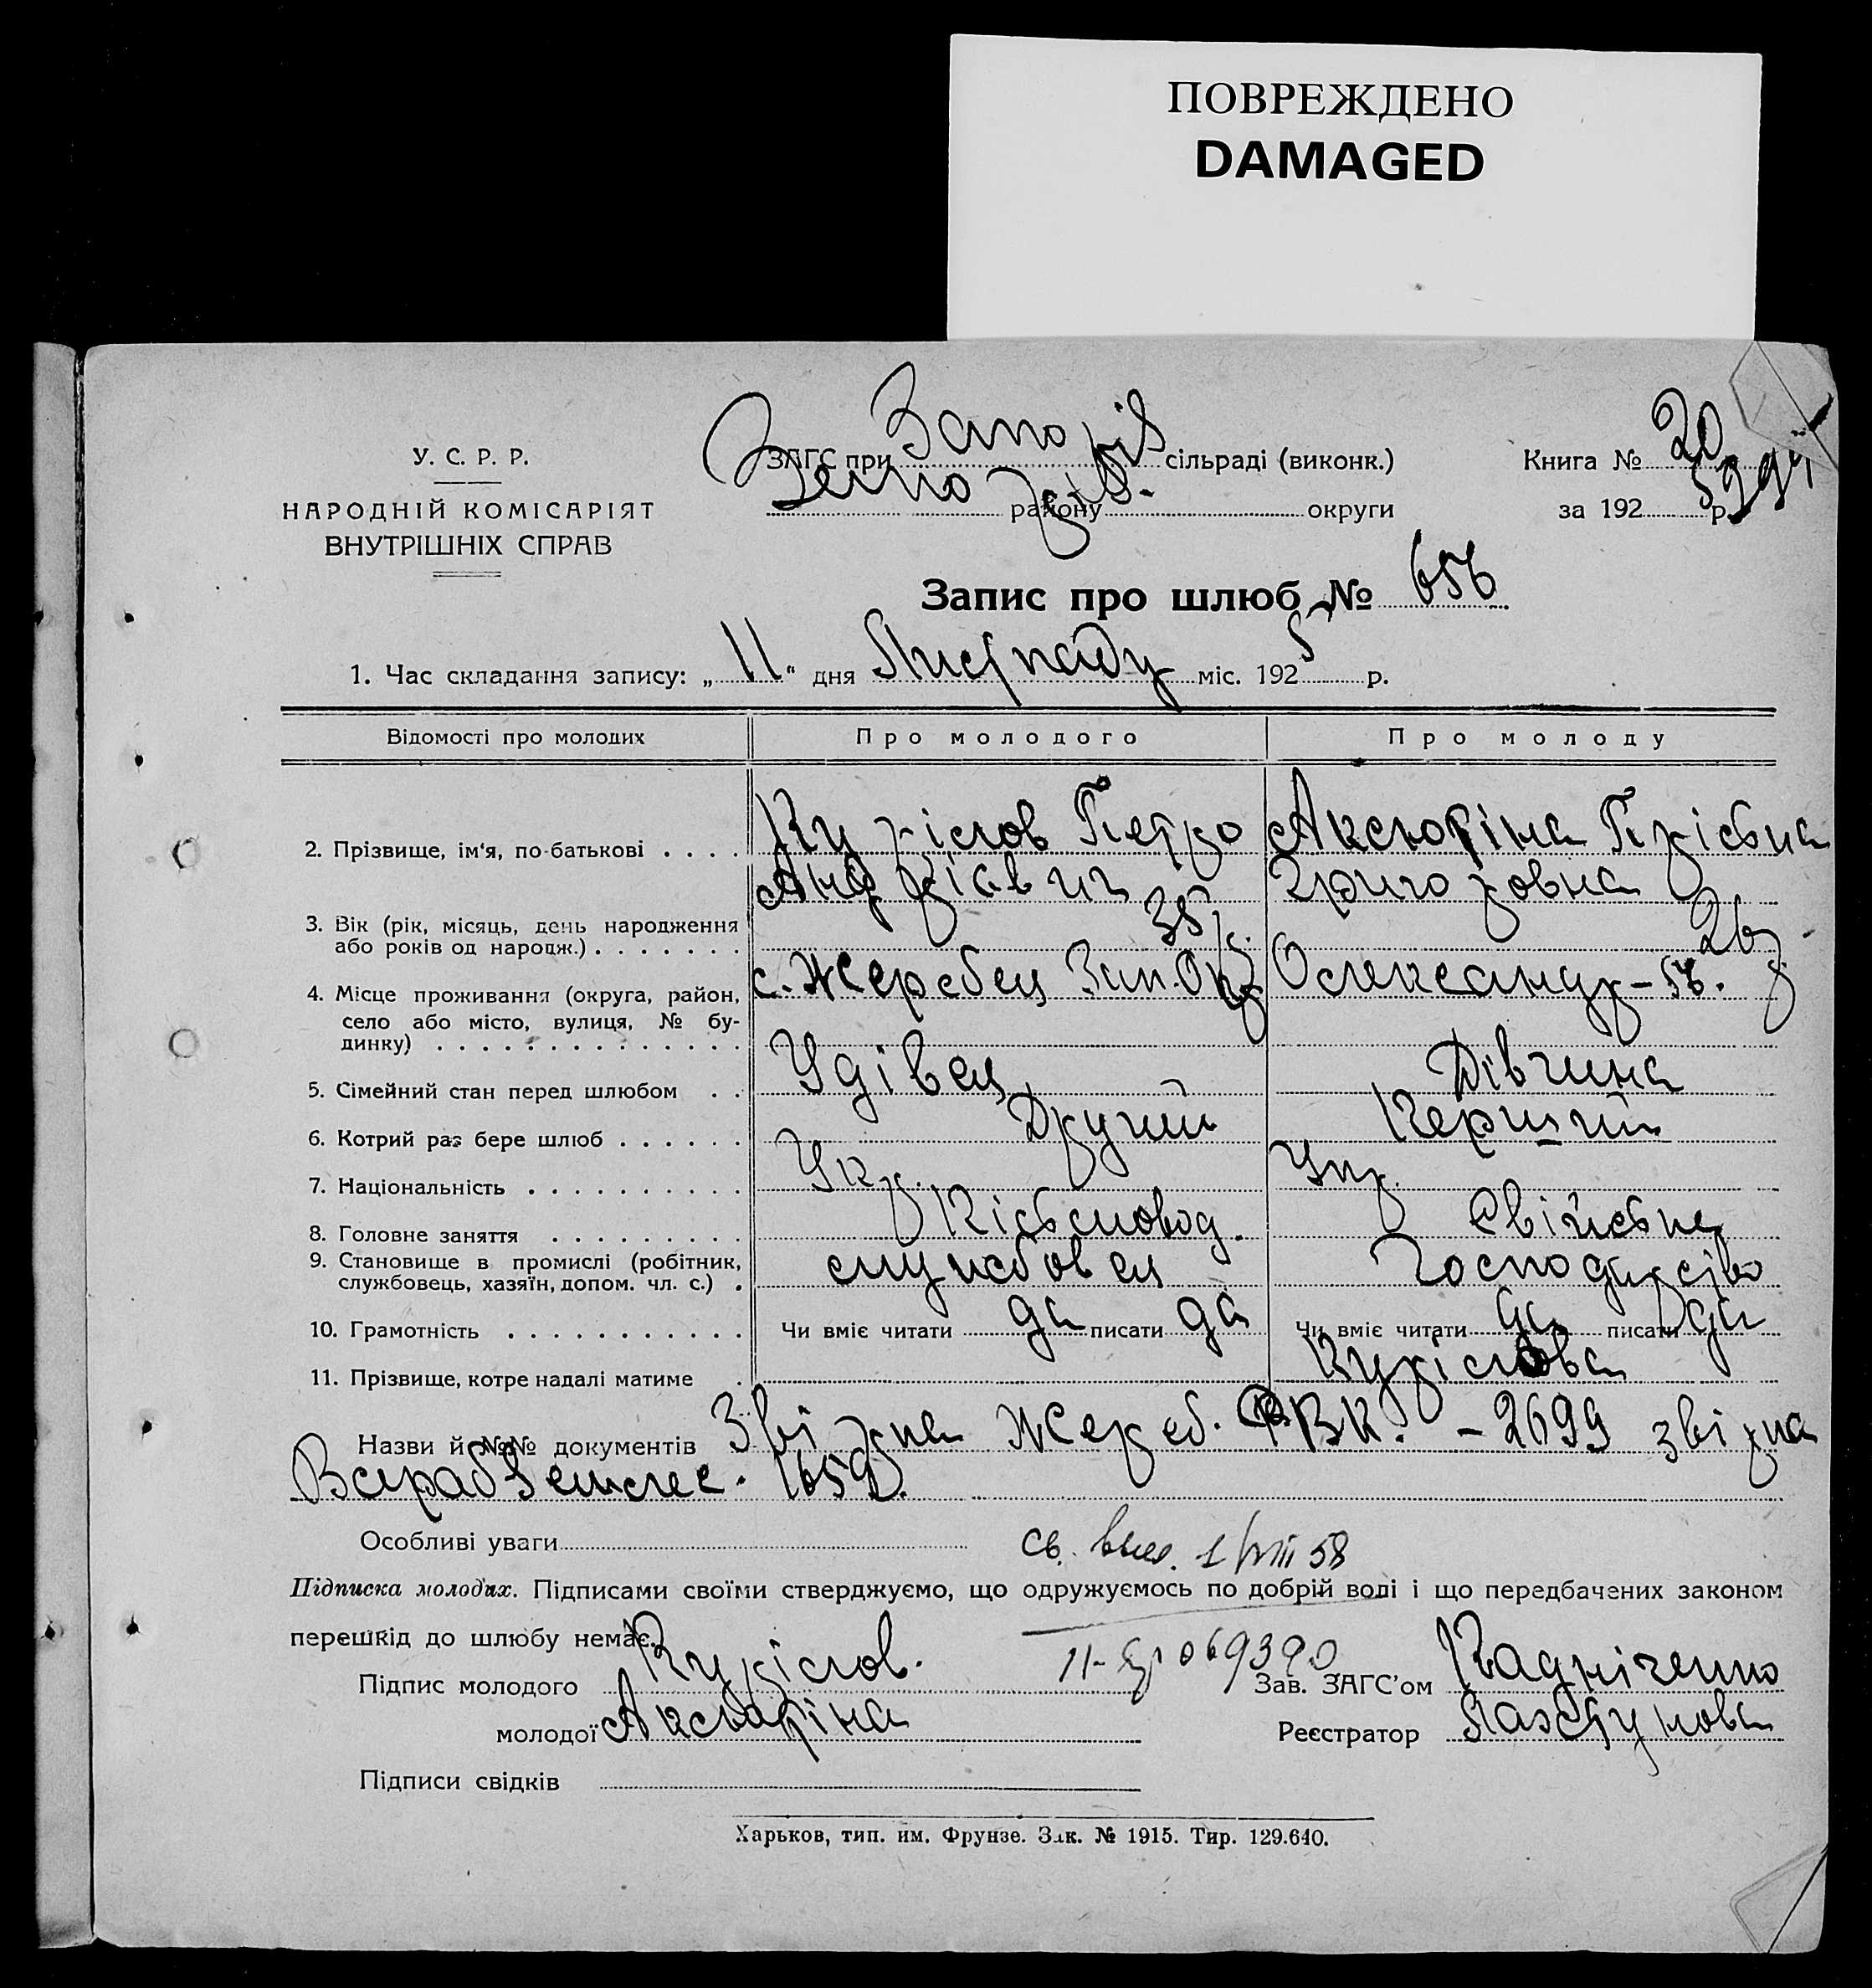 ПОВРЕЖДЕНО
DAMAGED
У. С. Р. Р.
НАРОДНІЙ КОМІСАРІЯТ
ВНУТРІШНІХ СПРАВ
ЗАГС при Запоріз сільраді (виконк.)
району округи
Книга № 20
за 1925 р.
Запис про шлюб № 656
1. Час складання запису: „11“ дня Листпаду міс. 1925 р.
Відомості про молодих Про молодого Про молоду
2. Прізвище, ім'я, по-батькові . . . . Курілов Петро Аксюріна
Андрієвич Григоровна
3. Вік (рік, місяць, день народження або років од народж.) . . . . . . . 35 р. 26 р.
4. Місце проживання (округа, район, село або місто, вулиця, № будинку) . . . . . . . . . . . . . . с. Жеребец Зап. Окр Олександр-
5. Сімейний стан перед шлюбом . . Удівец Дівчина
6. Котрий раз бере шлюб . . . . . . Другий Перший
7. Національність . . . . . . . . . . Укр. Укр.
8. Головне заняття . . . . . . . . . Свійське
9. Становище в промислі (робітник, службовець, хазяїн, допом. чл. с.) . службовец Господарство
10. Грамотність . . . . . . . . . . . Чи вміє читати да писати да Чи вміє читати да писати да
11. Прізвище, котре надалі матиме . Курілова
Назви й №№ документів Жереб. РВК. - 2699
1659.
Особливі уваги св. выд. 1/VIII 58
Підписка молодих. Підписами своїми стверджуємо, що одружуємось по добрій волі і що передбачених законом
перешкід до шлюбу немає.
Підпис молодого Курілов. 069390 Зав. ЗАГС'ом
молодої Аксюріна Реєстратор
Підписи свідків
Харьков, тип. им. Фрунзе. Зак. № 1915. Тир. 129.640.